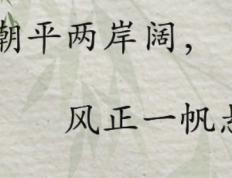 朝平两岸阔，
风正一帆